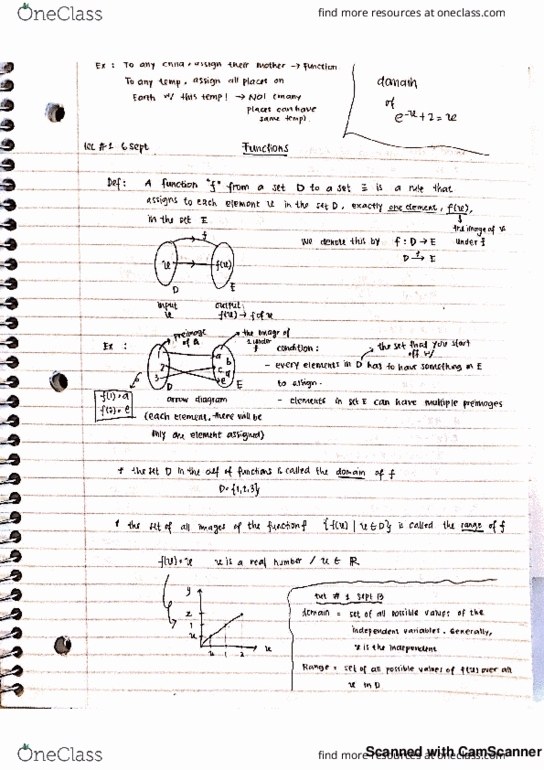 OneClass
find more resources at oneclass.com
Ex : To any child, assign their mother → function
To any temp, assign all places on
Earth w/ this temp! → NO! (many
places can have
same temp).
domain
of
e^-x + 2 = x
lec #1 6 Sept
Functions
Def: A function "f" from a set D to a set E is a rule that
assigns to each element x in the set D, exactly one element, f(x),
in the set E
the image of x
under f
we denote this by f : D → E
D →f E
f
x
f(x)
D
E
input
x
output
f(x) → f of x
Ex :
preimage
of a
the image of
2 under
f
1
2
3
a
b
c
d
e
D
E
f(1) = a
f(2) = e
arrow diagram
(each element, there will be
only one element assigned)
condition:
the set that you start
off w/
- every elements in D has to have something in E
to assign.
- elements in set E can have multiple preimages
* the set D in the def of functions is called the domain of f
D = {1,2,3}
* the set of all images of the function f {f(x) | x ∈ D} is called the range of f
f(x) = x x is a real number / x ∈ ℝ
y
2
1
x
x
1
2
x
tut # 1 Sept 13
domain = set of all possible values of the
independent variables. Generally,
x is the independent
Range = set of all possible values of f(x) over all
x in D
OneClass
find more resources at oneclass.com
Scanned with CamScanner